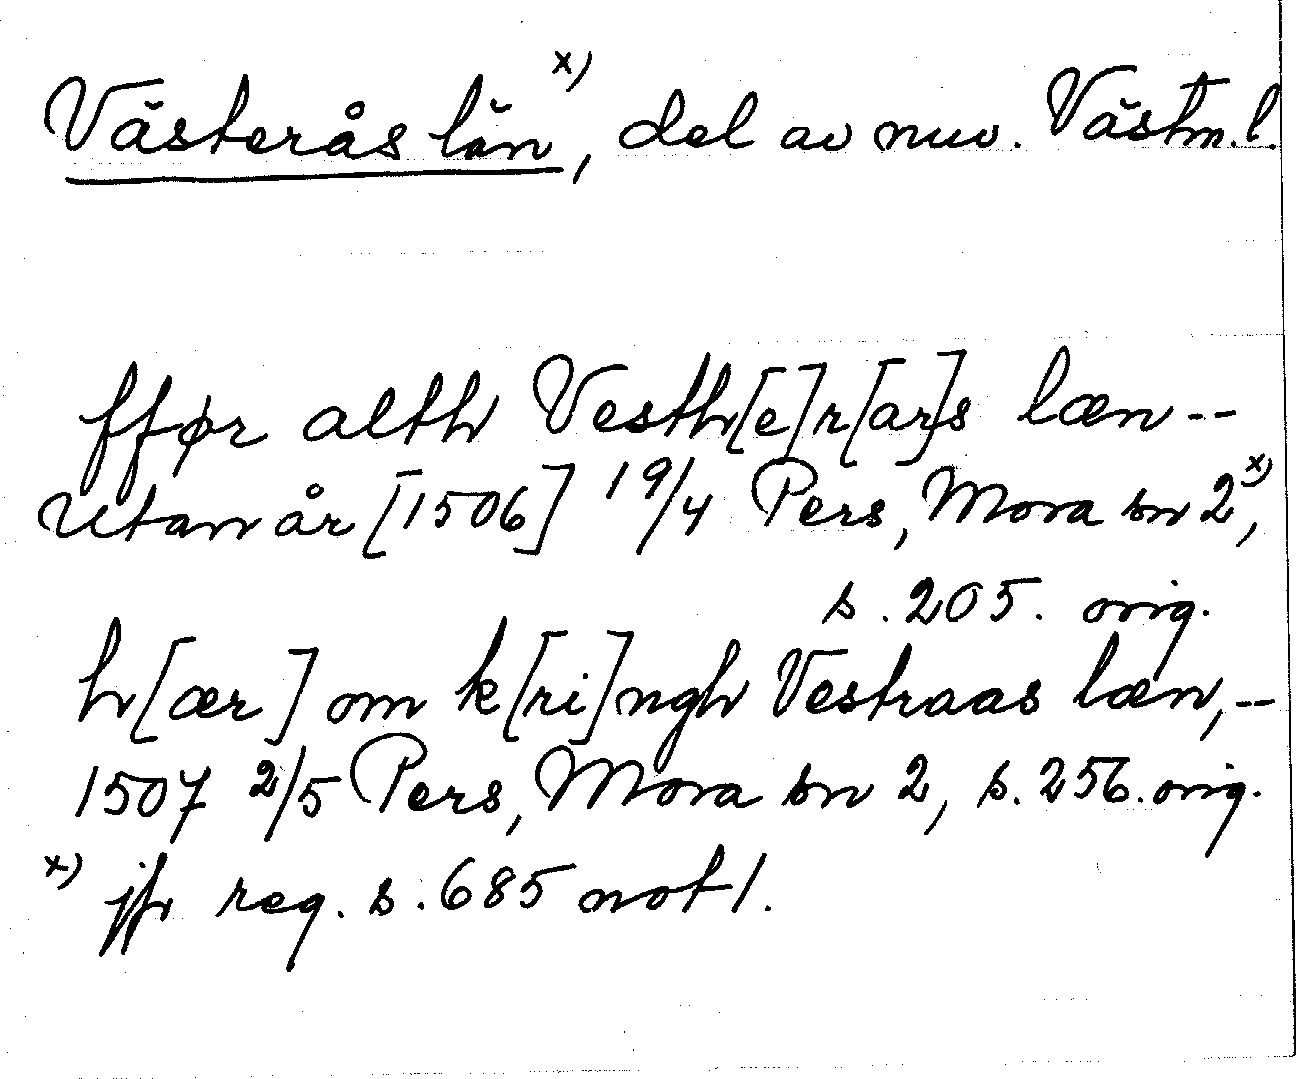 Västerås län x), del av nuv. Västm. l.
fför alth Vesth[e]r[ar]s læn --
Utan år [1506] 19/4 Pers, Mora bn 2 x),
s. 205. orig.
h[ær] om k[ri]ngh Vestraas læn, --
1507 2/5 Pers, Mora bn 2, s. 256. orig.
x) jfr reg. s. 685 not 1.